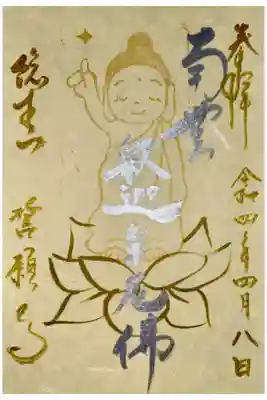 奉拝
令和四年四月八日
南無
釈迪牟尼佛
総本山
誓願寺